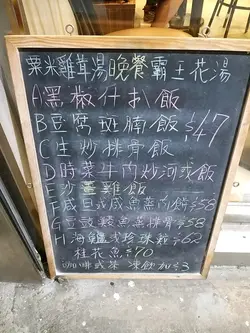 粟米雞茸湯晚餐霸王花湯
A黑椒什扒飯
B豆腐斑腩飯 $47
C生炒排骨飯
D時菜牛肉炒河或飯
E沙薑雞飯
F咸旦或咸魚蒸肉餅$58
G豆豉鯪魚蒸排骨$58
H海鱸或珍珠$62
桂花魚$70
咖啡或茶 凍飲加$3